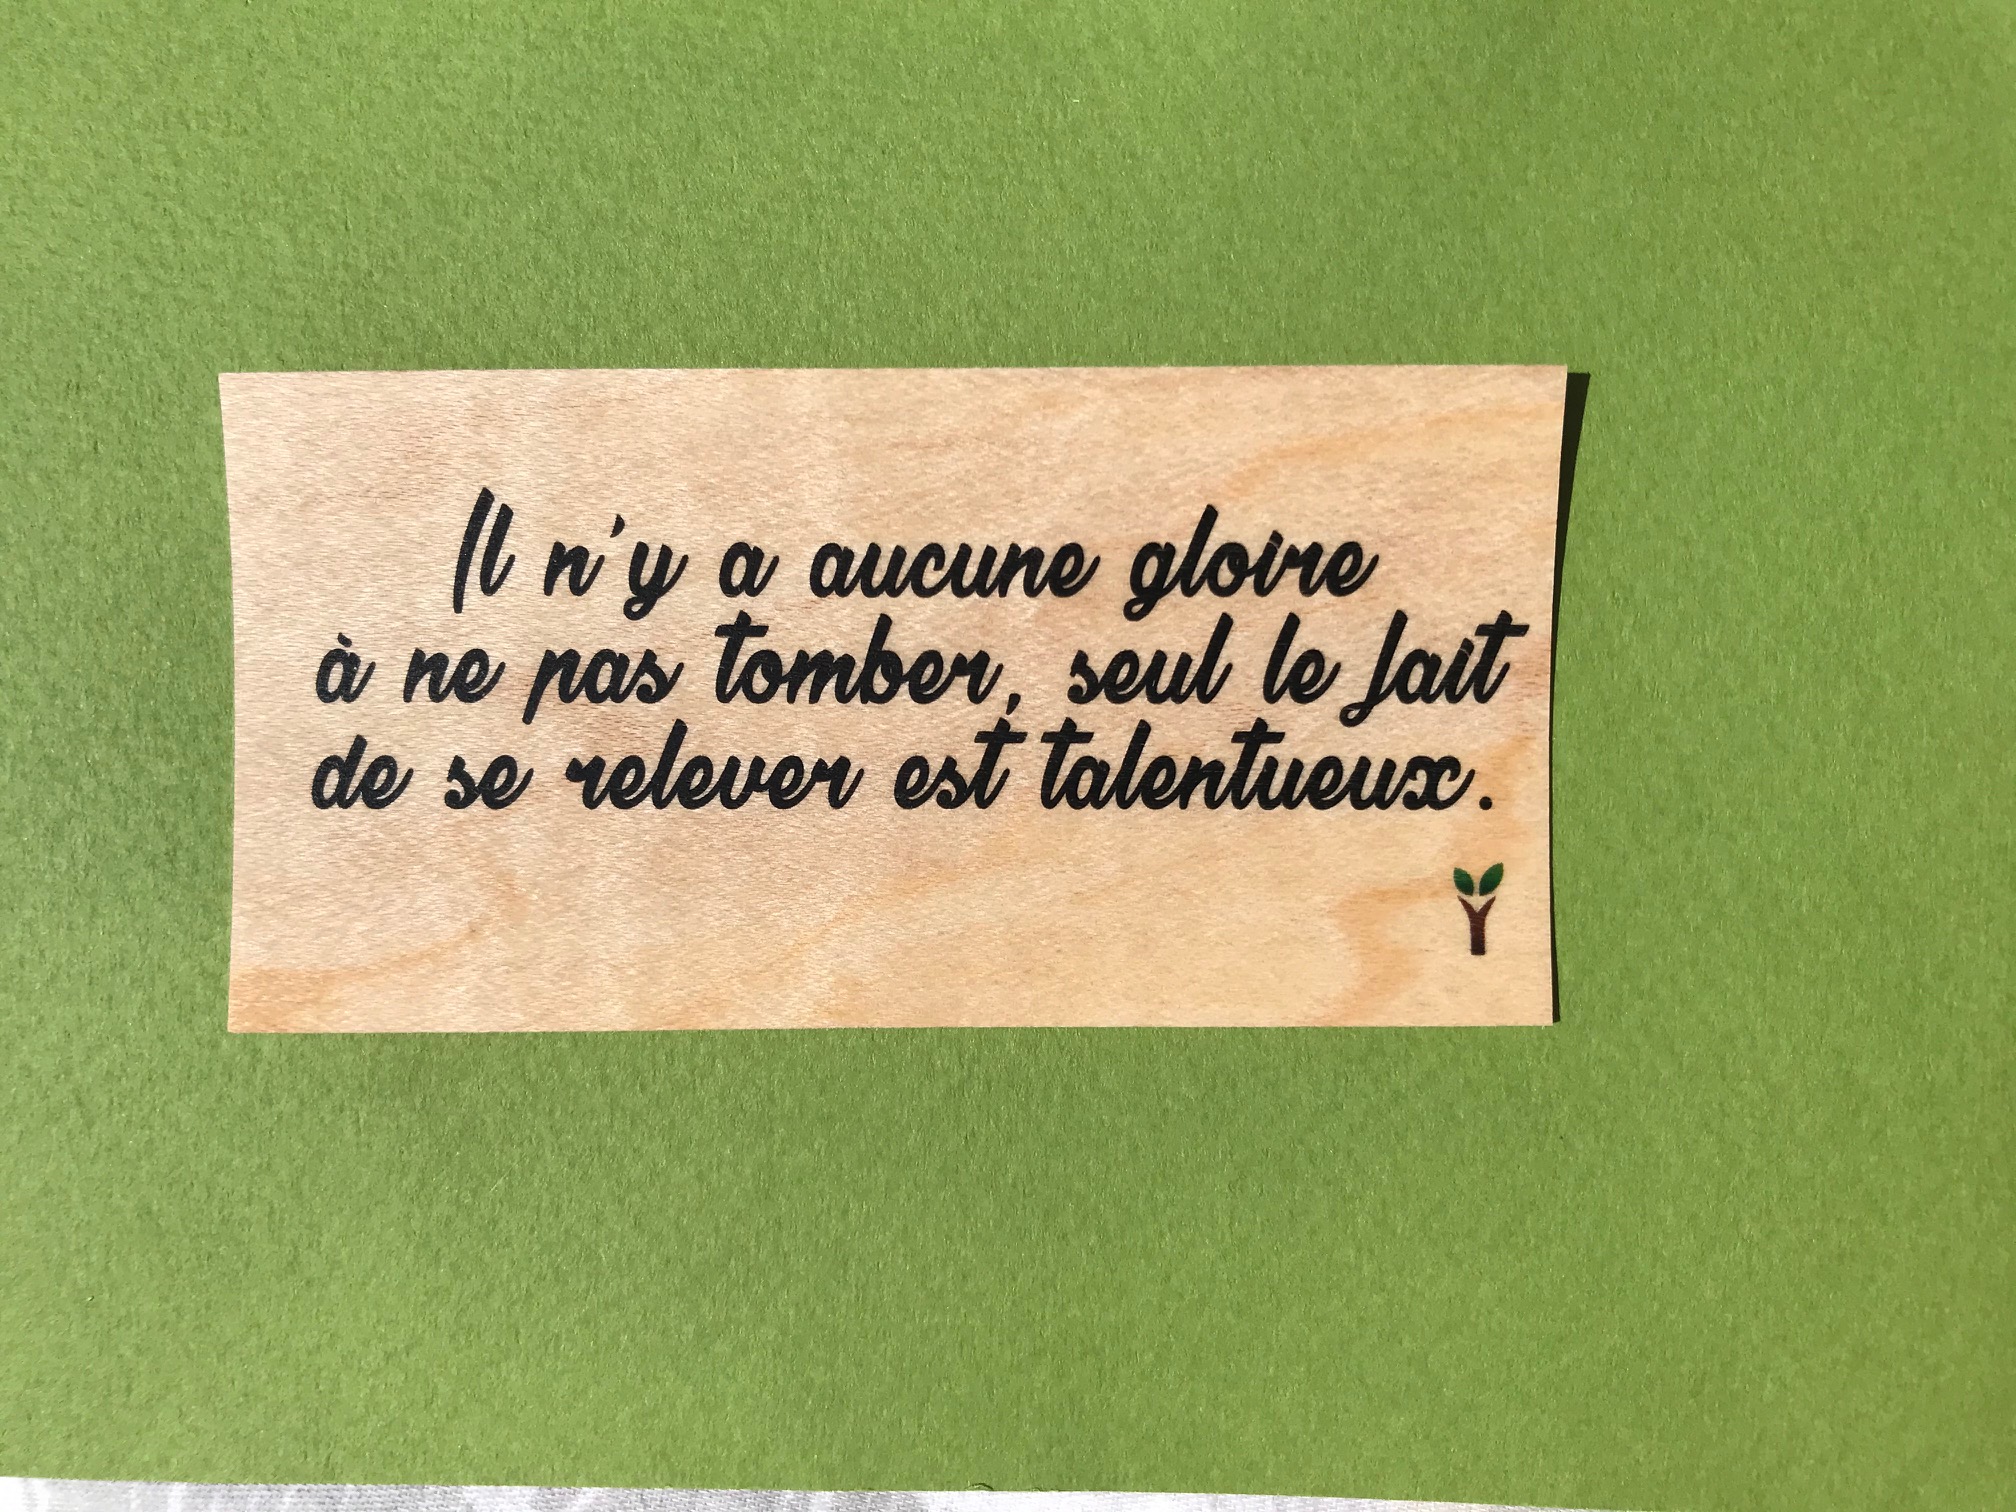 Il n'y a aucune gloire
à ne pas tomber, seul le fait
de se relever est talentueux.